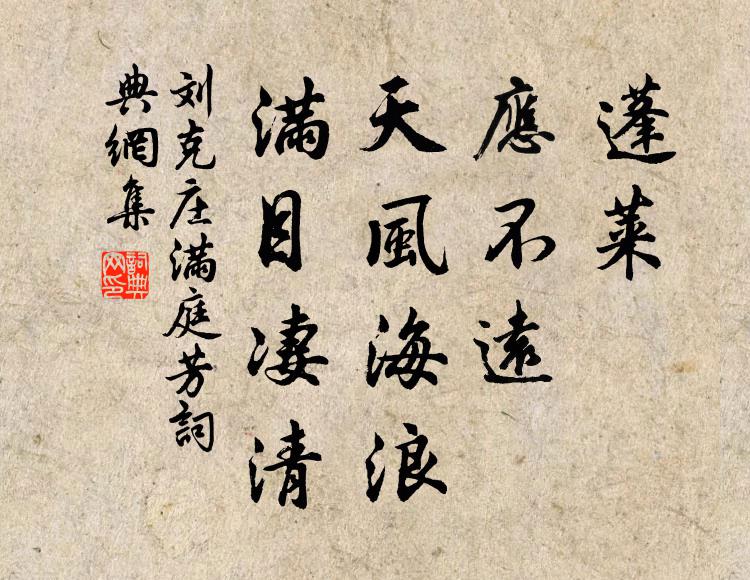 蓬萊
應不遠
天風海浪
滿目淒清
刘克庄滿庭芳詞
典網集
詞典
网印